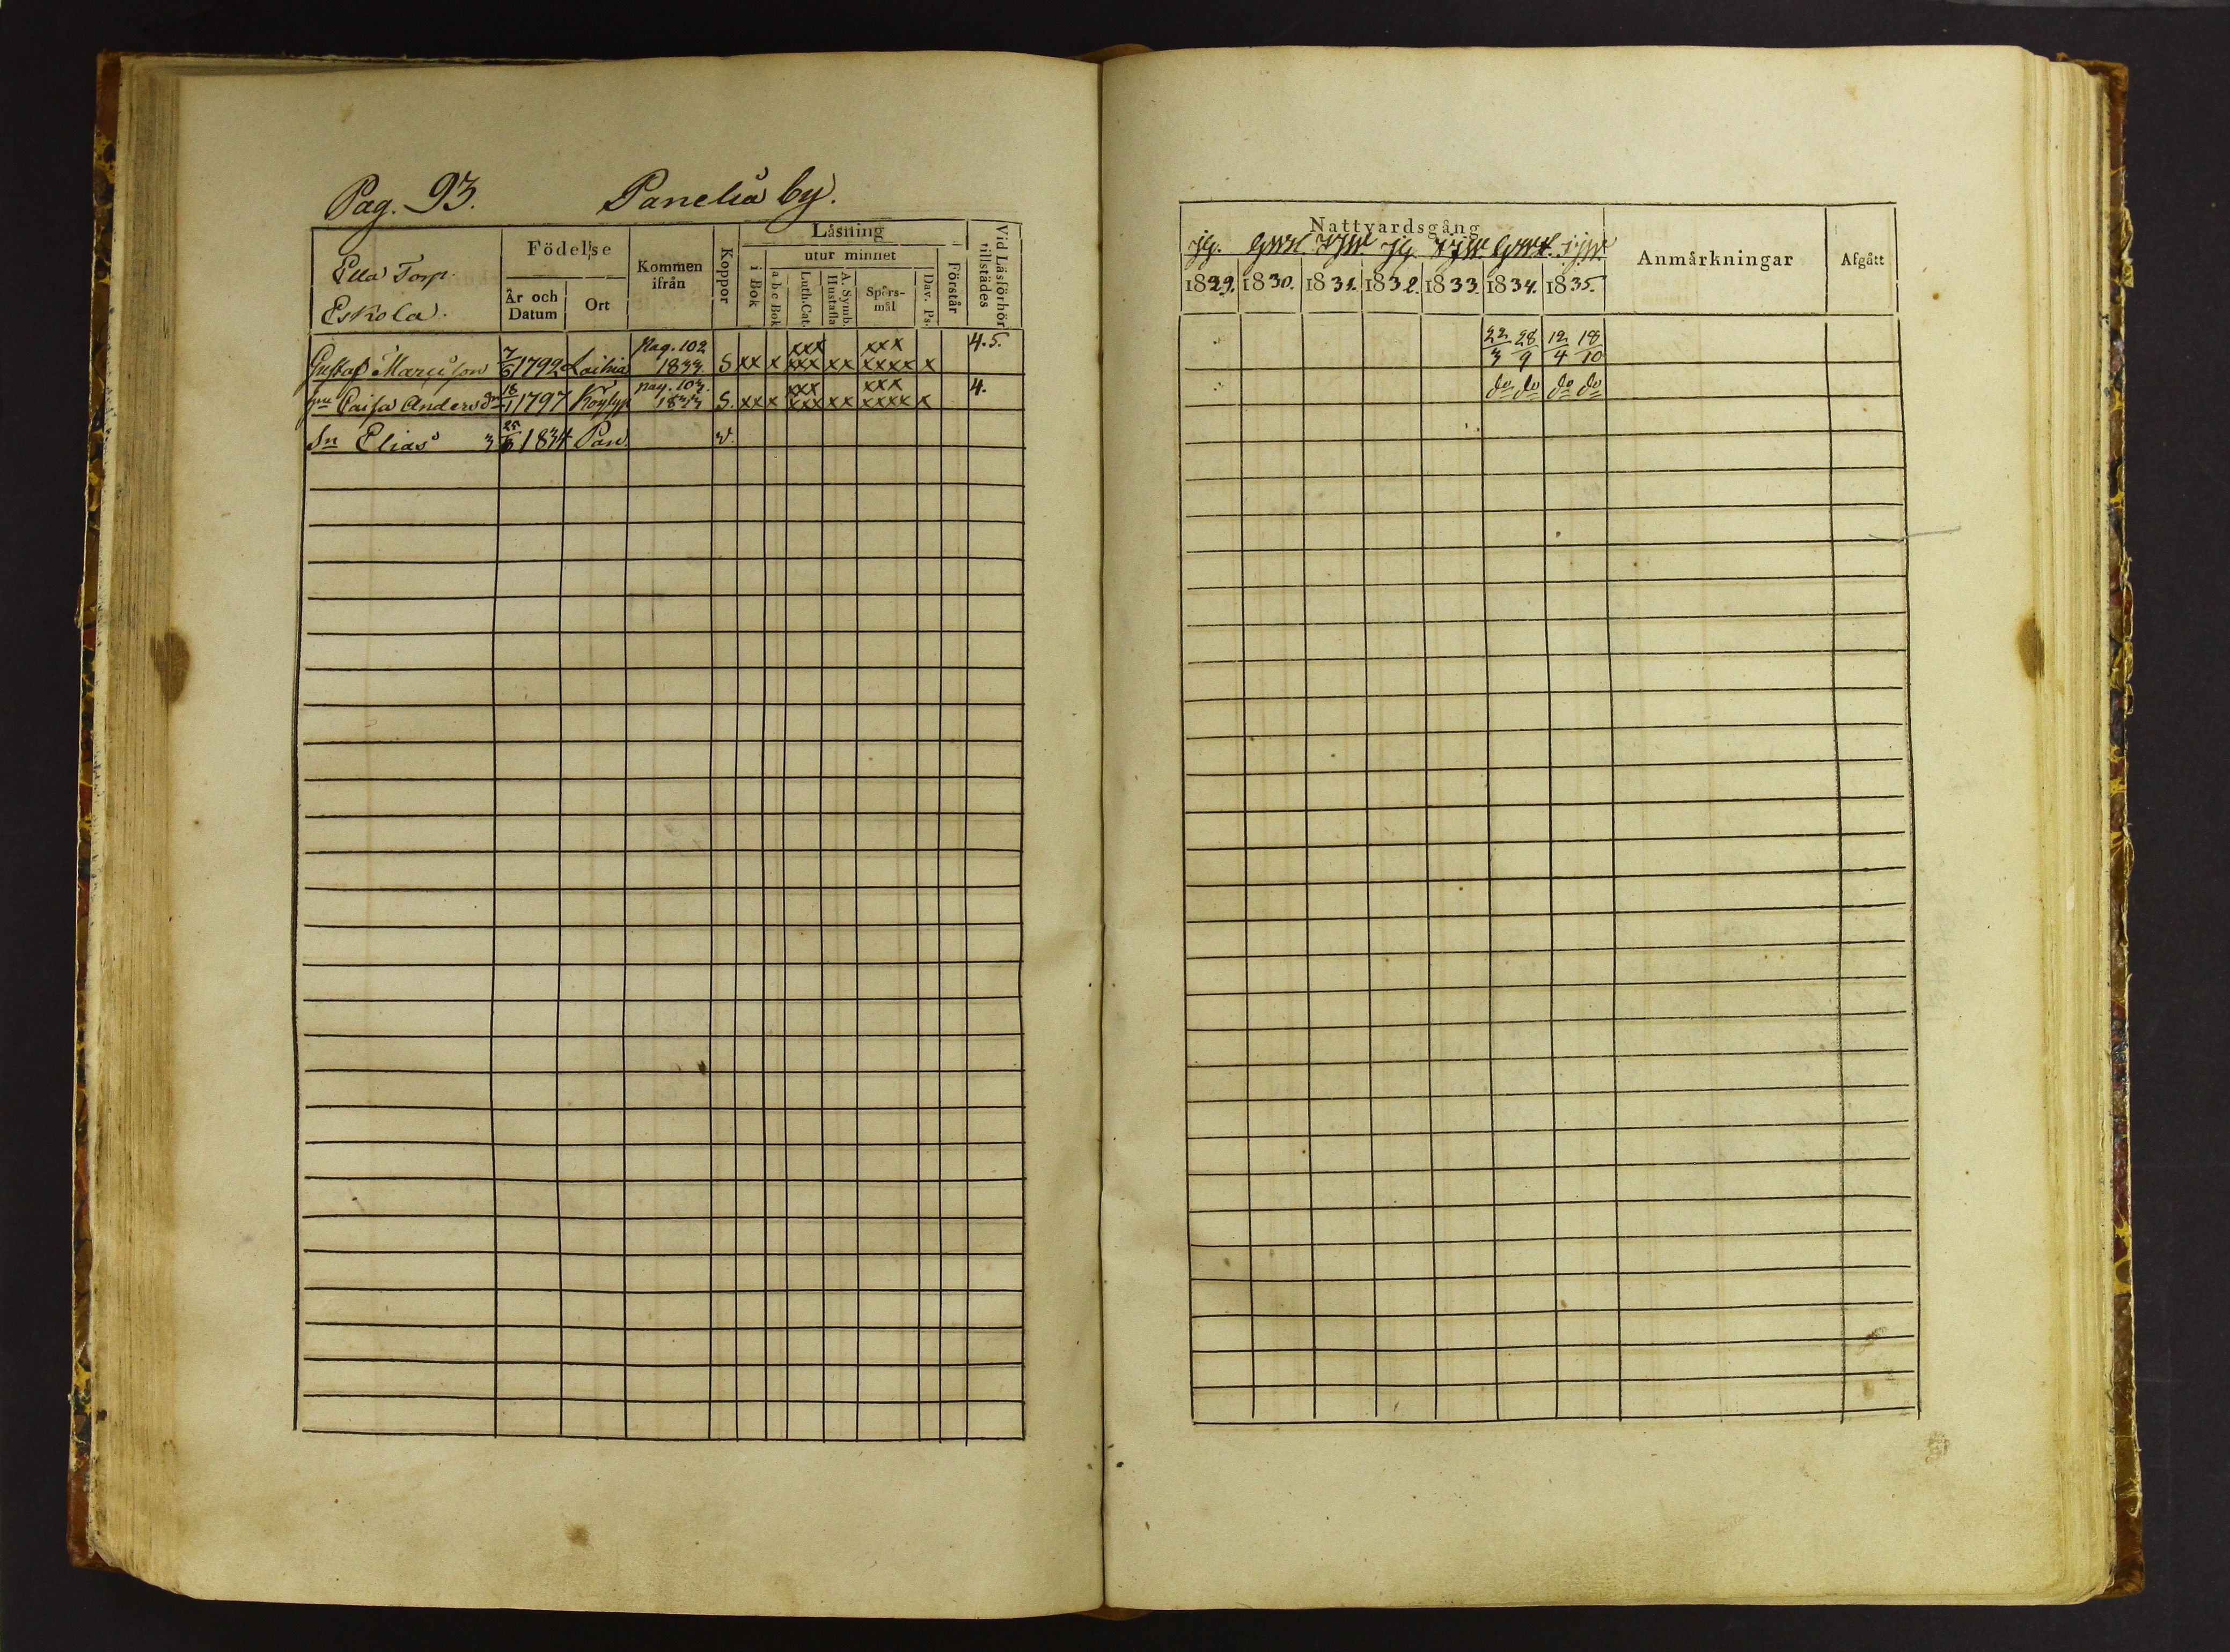 Pag. 93. Panelia by.
Ella Torp.
Eskola.
Födelse
År och Datum
Ort
Kommen ifrån
Koppor
Läsning
i Bok
utur minnet
a b c Bok
Luth. Cat.
A. Symb. Hustafla
Spörs-mål
Dav. Ps.
Förstår
Vid Läsförhör tillstädes
Gustaf Marcusson 7/6 1792 Laihia pag. 102 1833 S xx x xxx xxx xx xxx xxxx x 4.5.
Caisa Andersdr 18/1 1797 Köyly pag. 103. 1833 S. xx x xxx xxx xx xxx xxxx x 4.
Sn Elias 25/3 1834 Pan. v.
Nattvardsgång
1829. 1830. 1831. 1832. 1833. 1834. 1835.
Anmärkningar
Afgått
22/3 28/9 12/4 18/10
do do do do